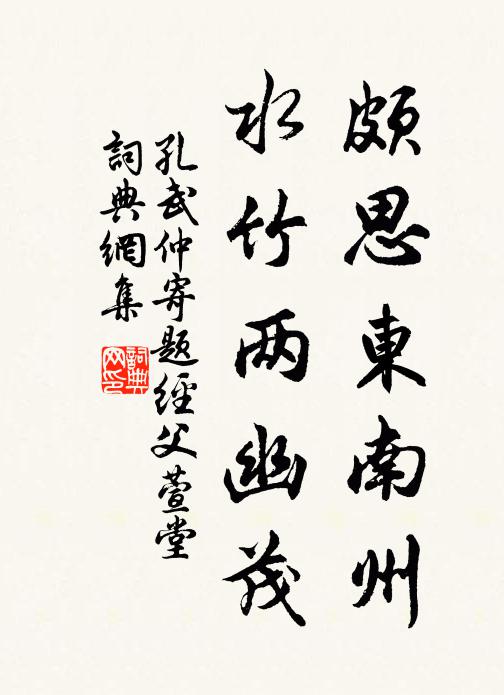 頗思東南州
水竹两幽茂
孔武仲寄题經父萱堂
詞典網集
詞典网印